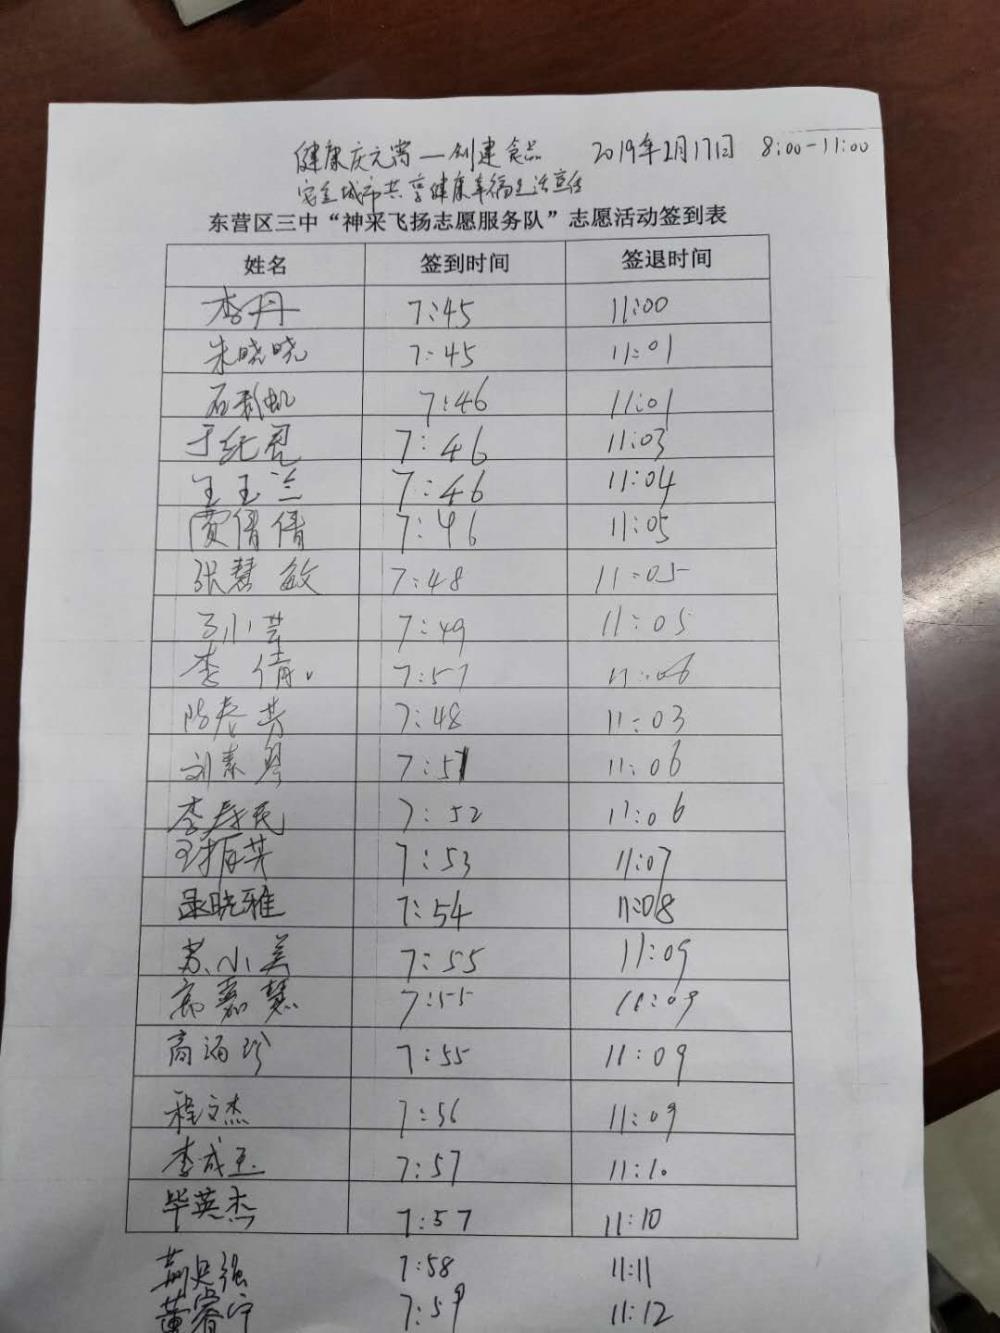 健康庆元宵—创建食品 2019年2月17日 8:00-11:00
安全城市共享健康幸福生活宣传
东营区三中“神采飞扬志愿服务队”志愿活动签到表
姓名 签到时间 签退时间
李丹 7:45 11:00
朱晓晓 7:45 11:01
石 7:46 11:01
于纪君 7:46 11:03
王玉兰 7:46 11:04
贾倩倩 7:46 11:05
张慧敏 7:48 11:05
小芸 7:49 11:05
李倩 7:51 11:06
陈春芳 7:48 11:03
刘素琴 7:51 11:06
李寿民 7:52 11:06
王振英 7:53 11:07
晓雅 7:54 11:08
苏小美 7:55 11:09
高嘉慧 7:55 11:09
高海珍 7:55 11:09
程文杰 7:56 11:09
李成玉 7:57 11:10
毕英杰 7:57 11:10
强 7:58 11:11
黄睿宁 7:59 11:12